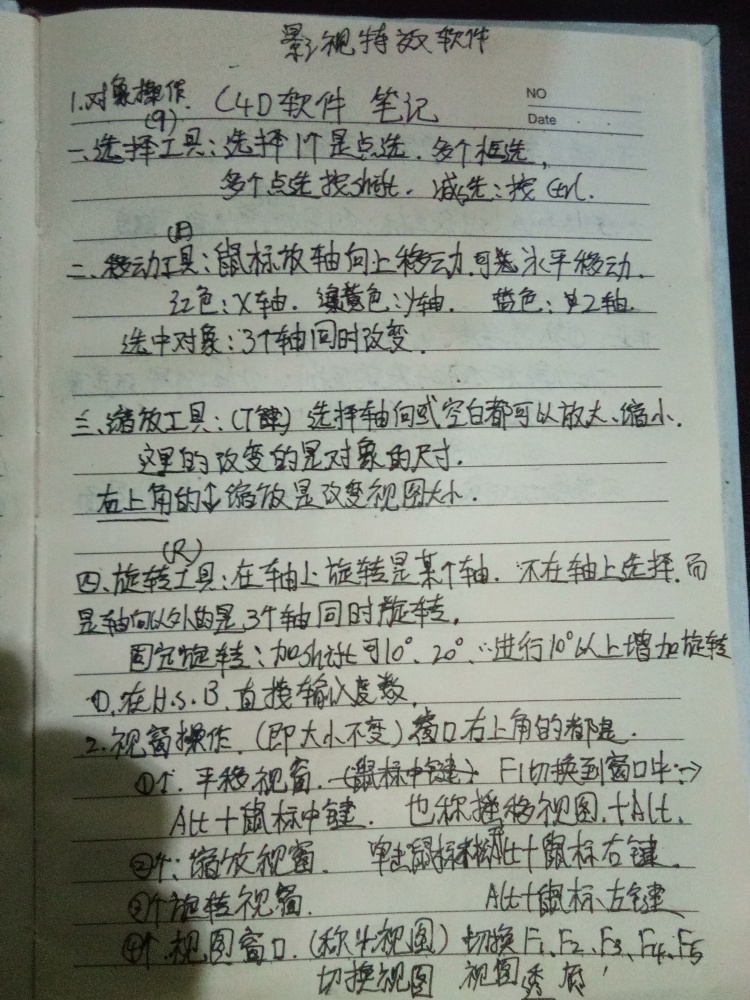 影视特效软件
1.对象操作. C4D软件 笔记
NO
Date
(9)
一、选择工具:选择1个是点选.多个框选,
多个点选按shift. 减选:按Ctrl.
二、移动工具:鼠标放轴向上移动.可选水平移动.
红色:X轴. 绿黄色:Y轴. 蓝色:Z轴.
选中对象:3个轴同时改变.
三、缩放工具:(T键)选择轴向或空白都可以放大、缩小.
这里的改变的是对象的尺寸.
右上角的↕缩放是改变视图大小.
(R)
四、旋转工具:在轴上旋转是某个轴. 不在轴上选择.而
是轴向以外的是3个轴同时旋转.
固定旋转:加shift可10°、20°…进行10°以上增加旋转
①.在H.S.B.直接输入度数.
2.视窗操作.(即大小不变)窗口右上角的都是.
①个.平移视窗.(鼠标中键) F1切换到窗口中→
Alt+鼠标中键. 也称摇移视图.+Alt.
②个:缩放视窗. 单击鼠标 Alt+鼠标右键.
③个旋转视窗. Alt+鼠标左键
④个.视图窗口.(称为视图)切换F1、F2、F3、F4、F5
切换视图 视图 透